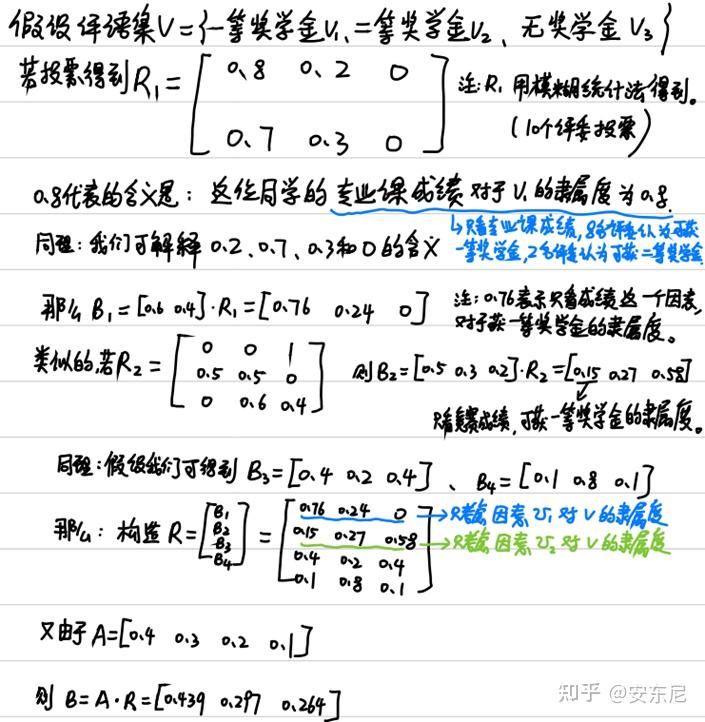 假设评语集V={一等奖学金V₁、二等奖学金V₂、无奖学金 V₃}
若投票得到R₁=[0.8 0.2 0
0.7 0.3 0]
注:R₁ 用模糊统计法得到。
(10个评委投票)
0.8代表的含义是:这位同学的专业课成绩对于V₁的隶属度为0.8.
↳只看专业课成绩,8名评委认为可获
一等奖学金,2名评委认为可获二等奖学金
同理:我们可解释 0.2、0.7、0.3和0的含义
那么 B₁=[0.6 0.4]·R₁=[0.76 0.24 0]
注:0.76表示只看成绩这一个因素,
对于获一等奖学金的隶属度。
类似的,若R₂=[0 0 1
0.5 0.5 0
0 0.6 0.4]
则B₂=[0.5 0.3 0.2]·R₂=[0.15 0.27 0.58]
只看竞赛成绩,可获一等奖学金的隶属度。
同理:假设我们可得到 B₃=[0.4 0.2 0.4]、B₄=[0.1 0.8 0.1]
那么:构造 R=[B₁ B₂ B₃ B₄]=[0.76 0.24 0
0.15 0.27 0.58
0.4 0.2 0.4
0.1 0.8 0.1]
→只考虑因素 U₁ 对 V 的隶属度
→只考虑因素 U₂ 对 V 的隶属度
又由于 A=[0.4 0.3 0.2 0.1]
则 B=A·R=[0.439 0.297 0.264]
知乎 @安东尼